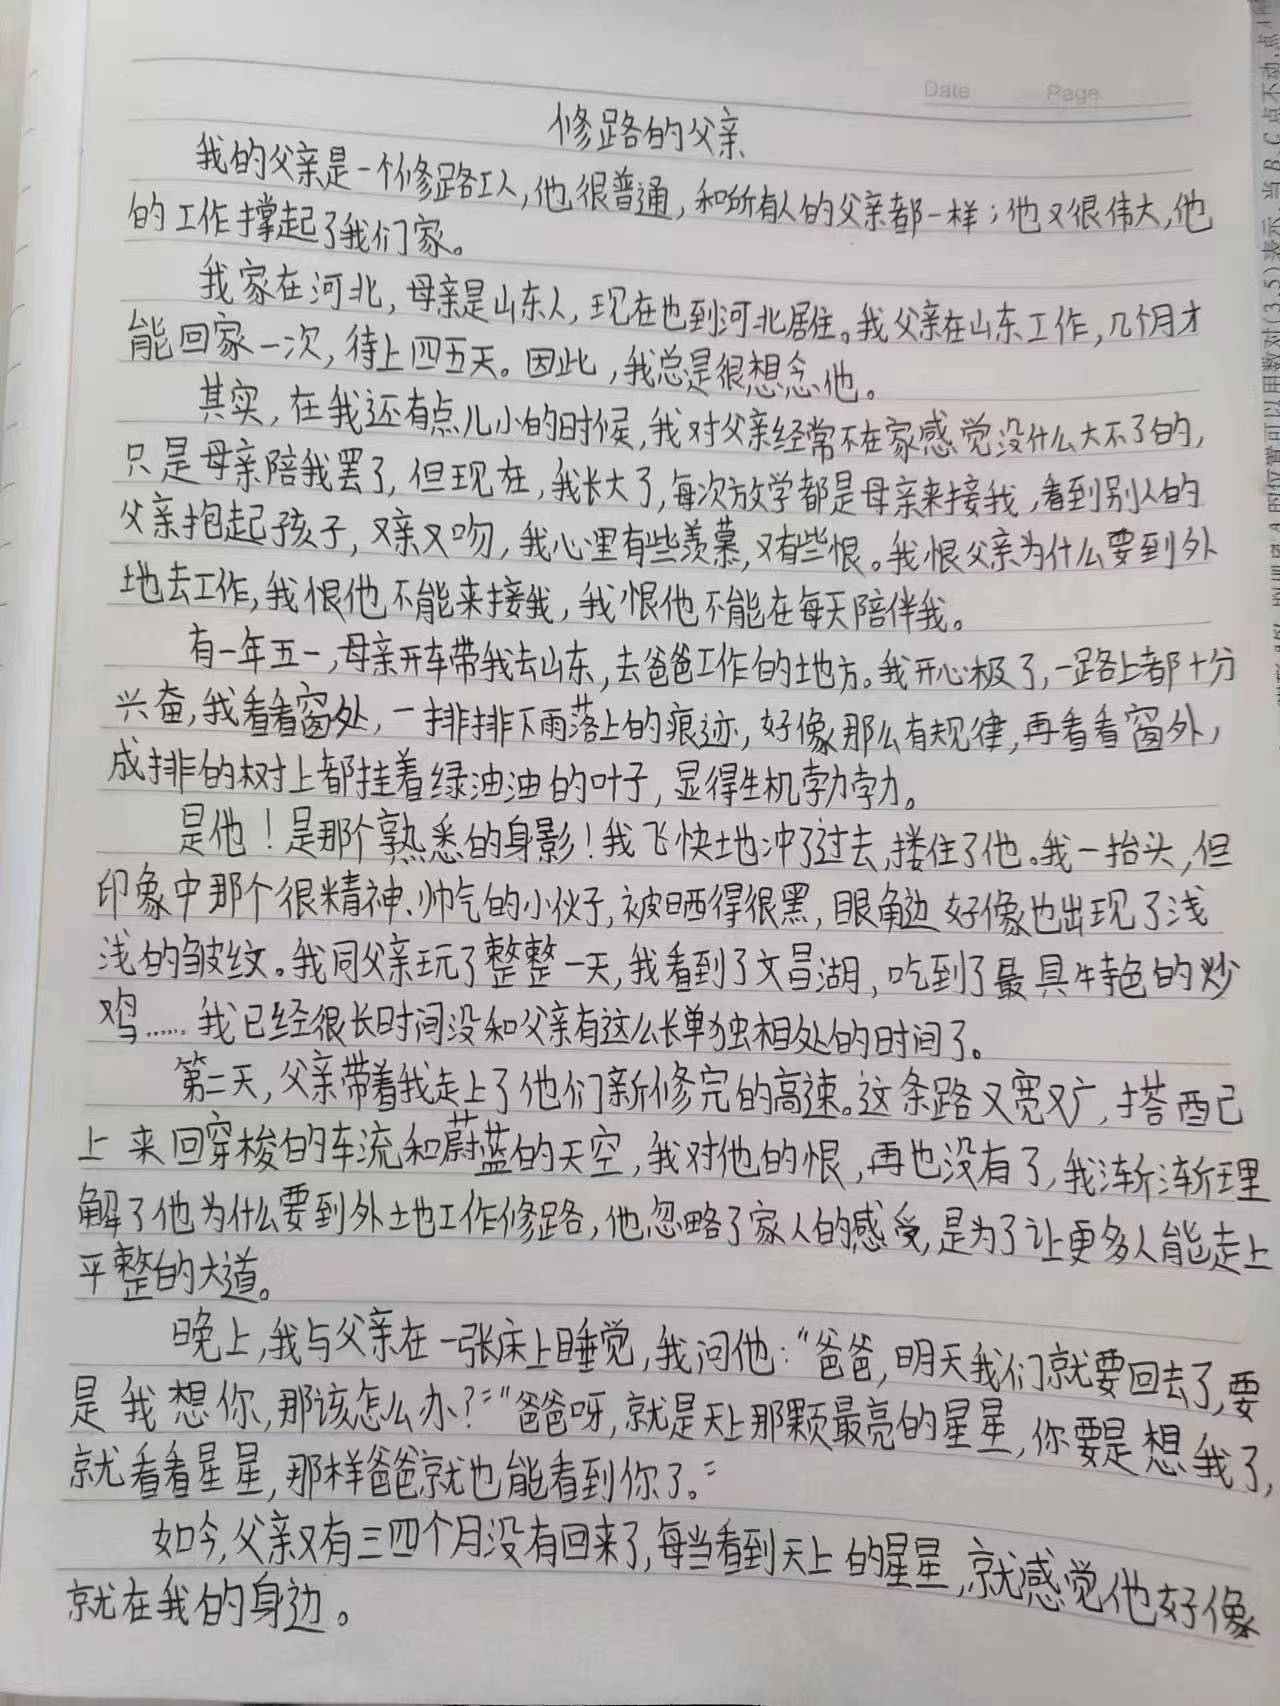 Date Page
修路的父亲
我的父亲是一个修路工人,他很普通,和所有人的父亲都一样;他又很伟大,他
的工作撑起了我们家。
我家在河北,母亲是山东人,现在也到河北居住。我父亲在山东工作,几个月才
能回家一次,待上四五天。因此,我总是很想念他。
其实,在我还有点儿小的时候,我对父亲经常不在家感觉没什么大不了的,
只是母亲陪我罢了,但现在,我长大了,每次放学都是母亲来接我,看到别人的
父亲抱起孩子,又亲又吻,我心里有些羡慕,又有些恨。我恨父亲为什么要到外
地去工作,我恨他不能来接我,我恨他不能在每天陪伴我。
有一年五一,母亲开车带我去山东,去爸爸工作的地方。我开心极了,一路上都十分
兴奋,我看看窗处,一排排下雨落上的痕迹,好像那么有规律,再看看窗外,
成排的树上都挂着绿油油的叶子,显得生机勃勃。
是他!是那个熟悉的身影!我飞快地冲了过去,搂住了他。我一抬头,但
印象中那个很精神、帅气的小伙子,被晒得很黑,眼角边好像也出现了浅
浅的皱纹。我同父亲玩了整整一天,我看到了文昌湖,吃到了最具特色的炒
鸡……我已经很长时间没和父亲有这么长单独相处的时间了。
第二天,父亲带着我走上了他们新修完的高速。这条路又宽又广,搭配
上来回穿梭的车流和蔚蓝的天空,我对他的恨,再也没有了,我渐渐理
解了他为什么要到外地工作修路,他忽略了家人的感受,是为了让更多人能走上
平整的大道。
晚上,我与父亲在一张床上睡觉,我问他:“爸爸,明天我们就要回去了,要
是我想你,那该怎么办?”“爸爸呀,就是天上那颗最亮的星星,你要是想我了,
就看看星星,那样爸爸就也能看到你了。”
如今,父亲又有三四个月没有回来了,每当看到天上的星星,就感觉他好像
就在我的身边。